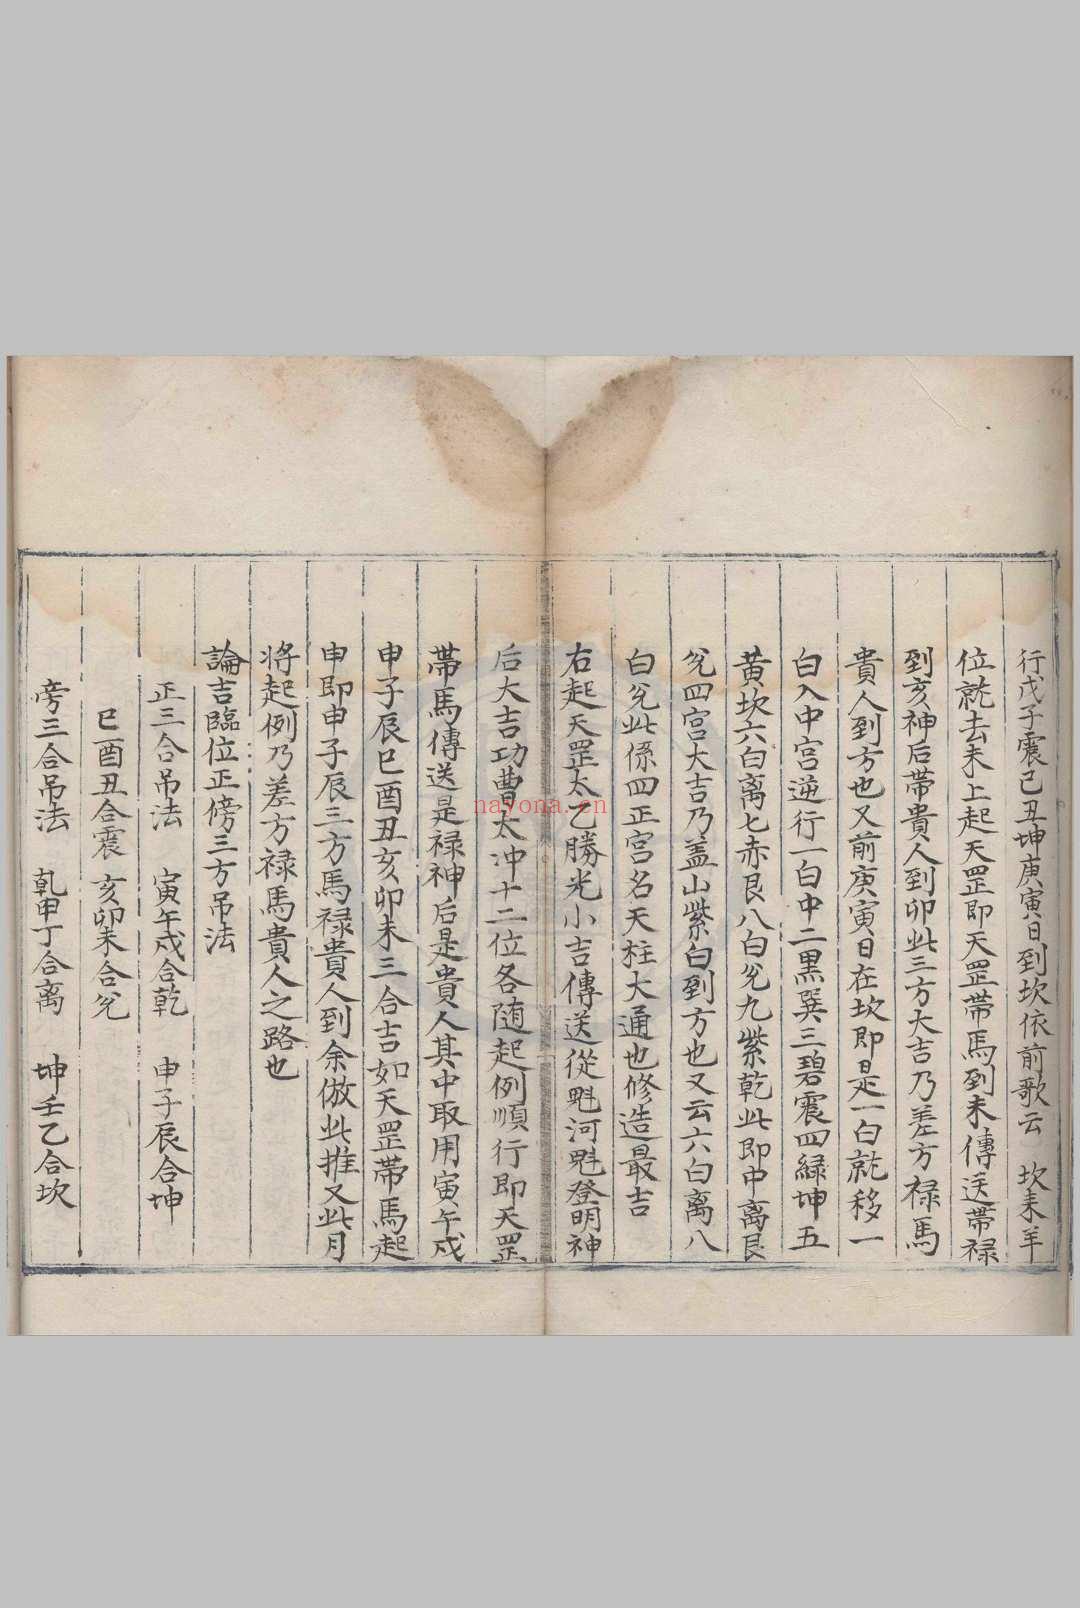 行戊子震己丑坤庚寅日到坎依前歌云　坎未羊
位就去未上起天罡即天罡帶馬到未傳送帶禄
到亥神后帶貴人到卯此三方大吉乃差方禄馬
貴人到方也又前庚寅日在坎即是一白就移一
白入中宮逆行一白中二黒巽三碧震四緑坤五
黄坎六白离七赤艮八白兌九紫乾此即中离艮
兌四宮大吉乃盖山紫白到方也又云六白离八
白兌此係四正宮名天柱大通也修造最吉
右起天罡太乙勝光小吉傳送從魁河魁登明神
后大吉功曹太冲十二位各随起例順行即天罡
帶馬傳送是禄神后是貴人其中取用寅午戌
申子辰巳酉丑亥卯未三合吉如天罡帶馬起
申即申子辰三方馬禄貴人到余倣此推又此月
将起例乃差方禄馬貴人之路也
論吉臨位正傍三方吊法
正三合吊法　寅午戌合乾　申子辰合坤
巳酉丑合震　亥卯未合兌
旁三合吊法　乾甲丁合离　坤壬乙合坎
nayona.cn